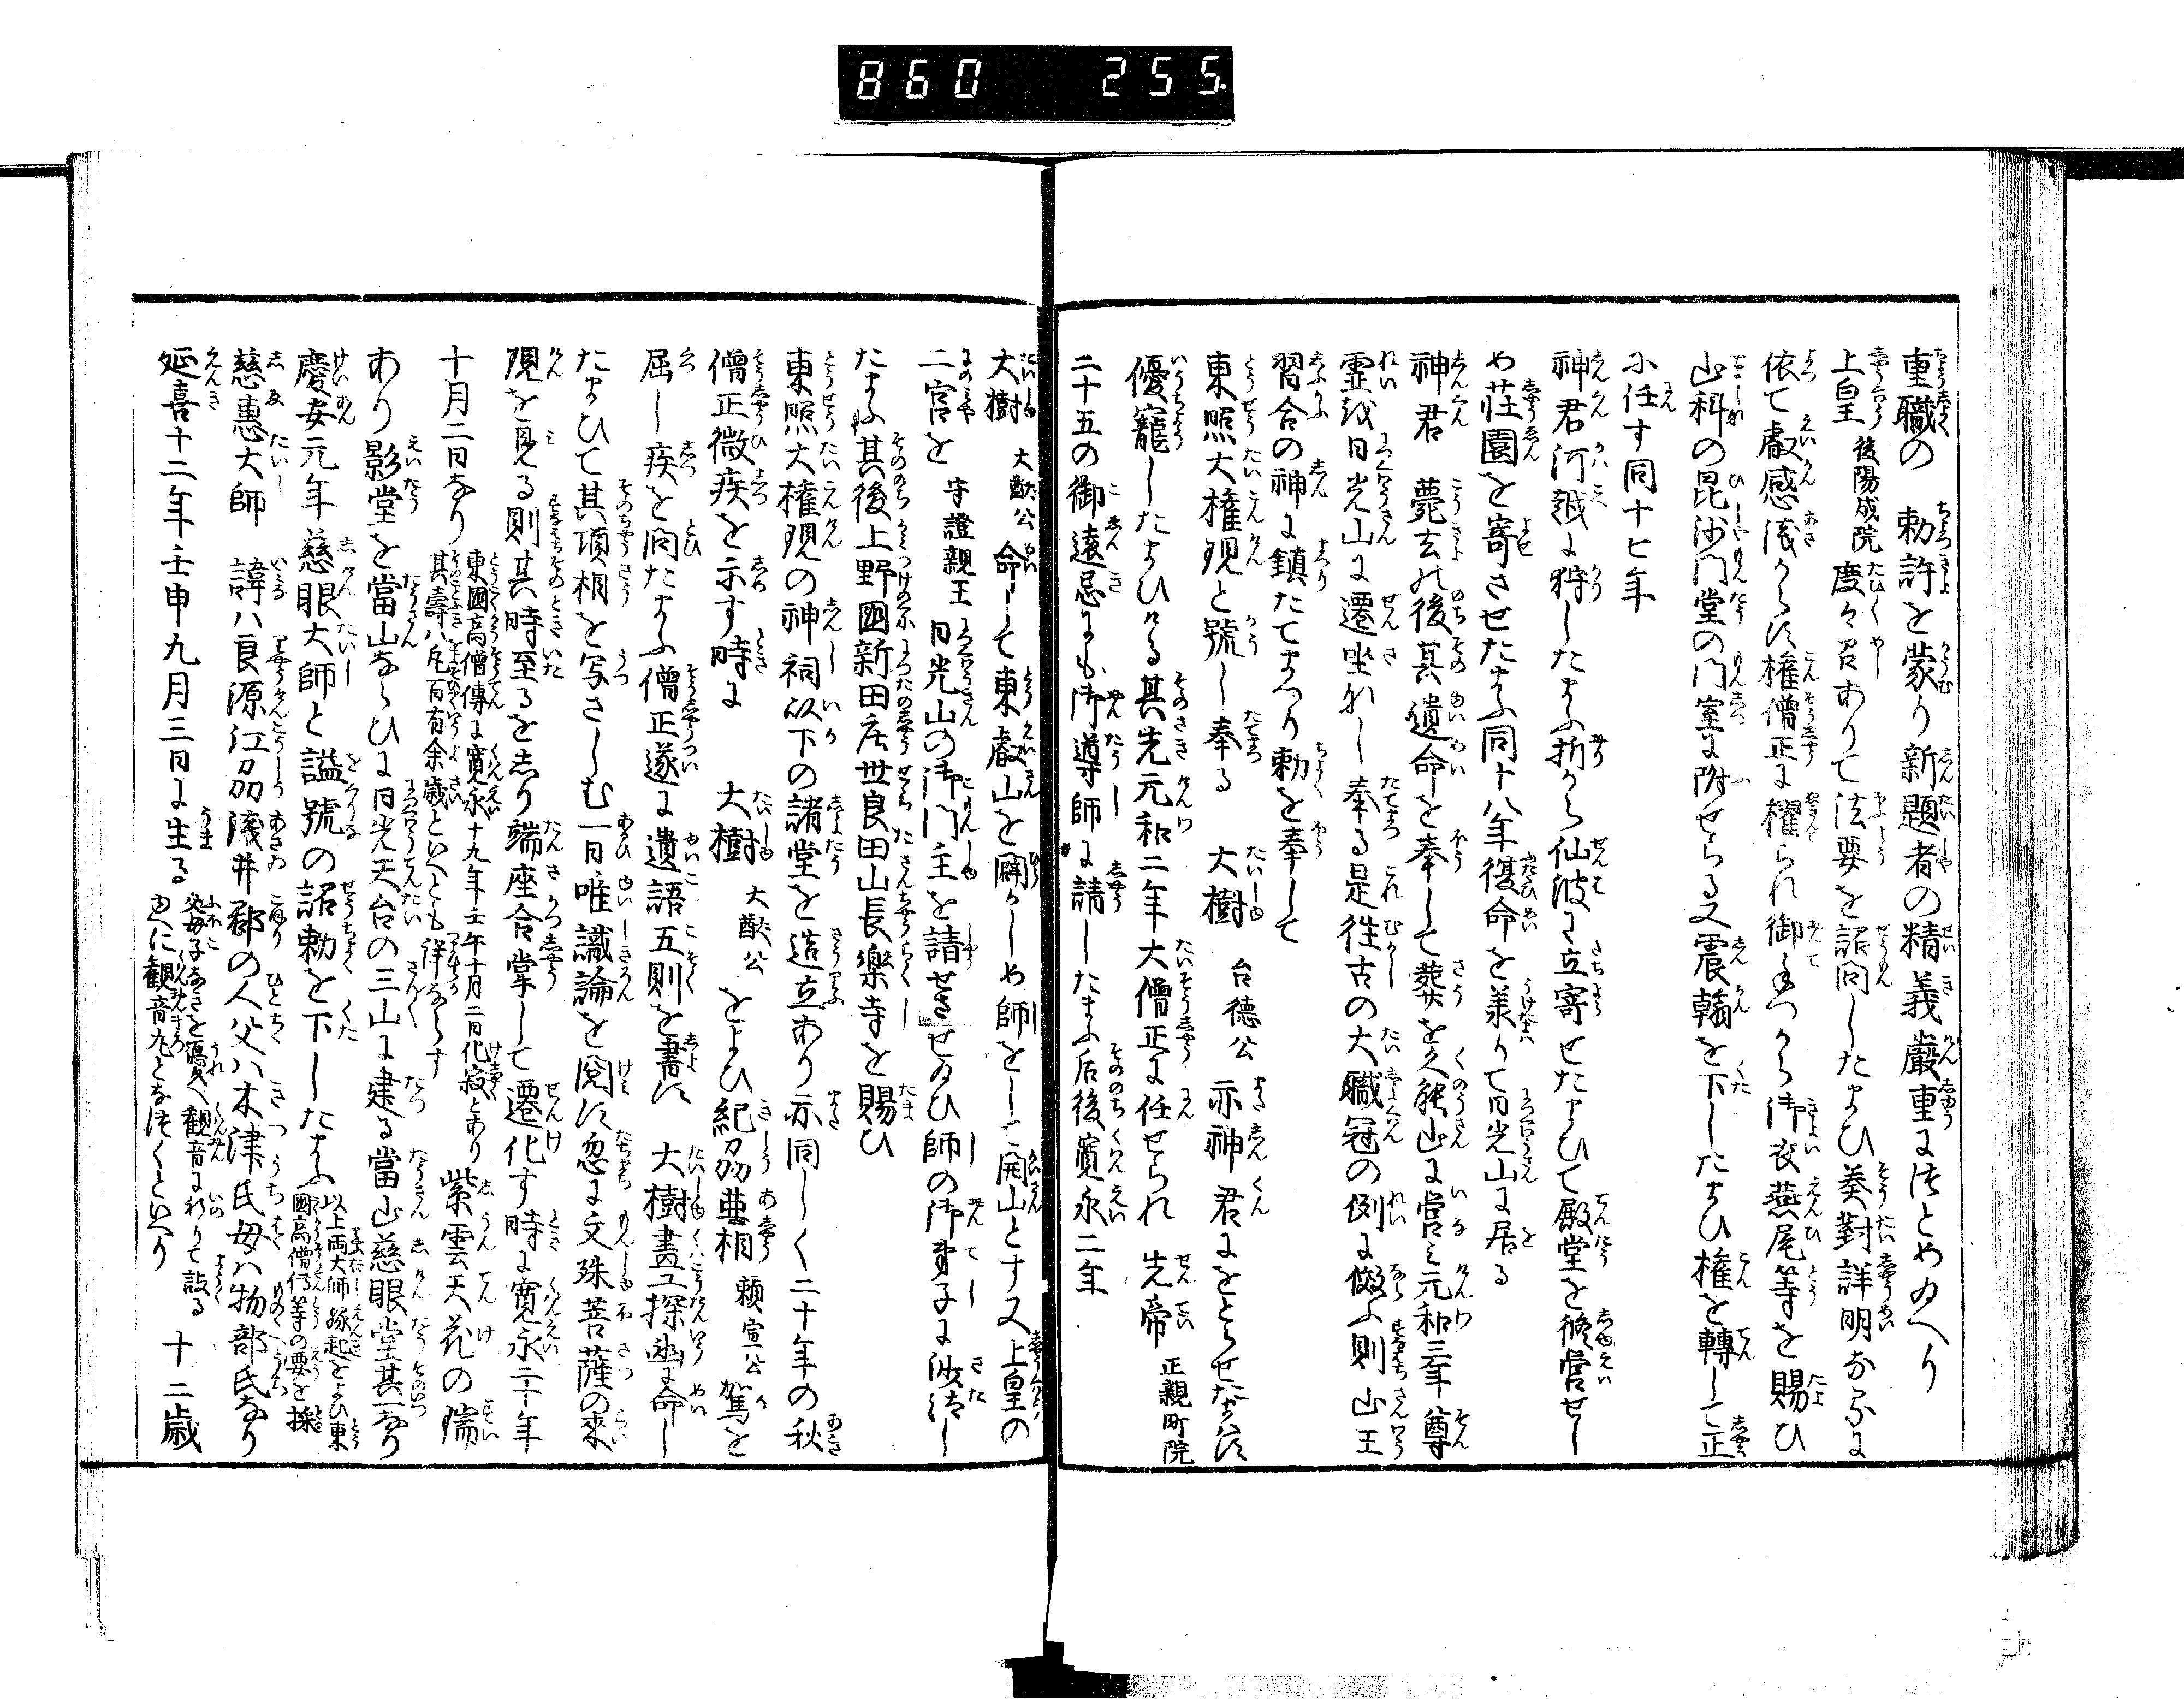 860 255.
重職の　勅許を蒙り新題者の精義嚴重につとめ給へり
上皇 後陽成院 度々召ありて法要を詔問したまひ奏對詳明なるに
依て叡感浅からす權僧正に擢られ御手つから御衣燕尾等を賜ひ
山科の毘沙門堂の門室に附せらる又震翰を下したまひ權を轉して正
に任す同十七年
神君河越に狩したまふ折から仙波に立寄せたまひて殿堂を修營せし
め荘園を寄させたまふ同十八年復命を羕りて日光山に居る
神君　薨去の後其遺命を奉して葬を久能山に営み元和三年尊
霊を日光山に遷坐なし奉る是往古の大職冠の例に傚ふ則山王
習合の神に鎮たてまつり勅を奉して
東照大權現と號し奉る　大樹 台德公 亦神君におとらせたまはす
優寵したまひける其先元和二年大僧正に任せられ　先帝 正親町院
二十五の御遠忌にも御導師に請したまふ后後寛永二年
大樹 大猷公 命して東叡山を闢かしめ師をして開山とす又上皇の
二宮を 守證親王 日光山の御門主を請せさせ給ひ師の御弟子に沙汰し
たまふ其後上野國新田庄世良田山長樂寺を賜ひ
東照大權現の神祠以下の諸堂を造立あり亦同しく二十年の秋
僧正微疾を示す時に　大樹 大猷公 をよひ紀刕亜相 頼宣公 駕を
屈し疾を問たまふ僧正遂に遺語五則を書す　大樹畫工探幽に命し
たまひて其項相を写さしむ一日唯識論を閲す忽に文殊菩薩の來
現を見る則其時至るを志り端座合掌して遷化す時に寛永二十年
十月二日なり 東國高僧傳に寛永十九年壬午十月二日化寂とあり其壽ハ凢百有余歳といへとも詳ならす 紫雲天花の瑞
あり影堂を當山ならひに日光天台の三山に建る當山慈眼堂其一なり
慶安元年慈眼大師と謚號の詔勅を下したまふ 以上両大師縁起をよひ東國高僧傳等の要を採
慈惠大師　諱ハ良源江刕浅井郡の人父ハ木津氏母ハ物部氏なり
延喜十二年壬申九月三日に生る 父母子なきを憂へ観音にいのりて設るゆへに観音丸となつくといへり 十二歳